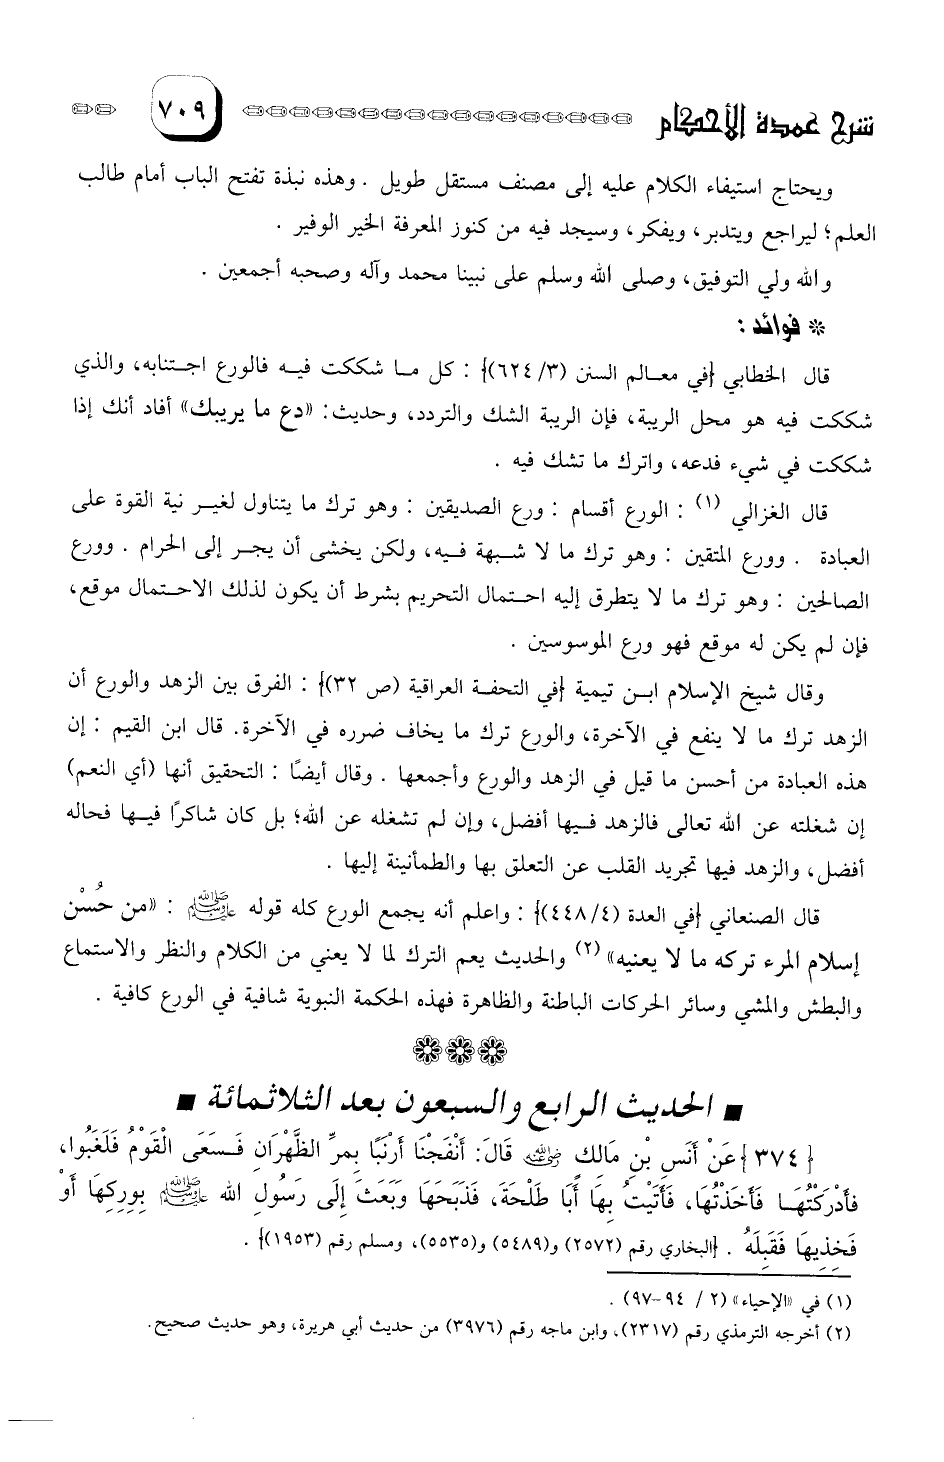 شرح عمدة الأحكام
٧٠٩
ويحتاج استيفاء الكلام عليه إلى مصنف مستقل طويل . وهذه نبذة تفتح الباب أمام طالب
العلم؛ ليراجع ويتدبر، ويفكر، وسيجد فيه من كنوز المعرفة الخير الوفير .
والله ولي التوفيق، وصلى الله وسلم على نبينا محمد وآله وصحبه أجمعين .
* فوائد :
قال الخطابي {في معالم السنن (٣/ ٦٢٤)} : كل ما شككت فيه فالورع اجتنابه، والذي
شككت فيه هو محل الريبة، فإن الريبة الشك والتردد، وحديث: «دع ما يريبك» أفاد أنك إذا
شككت في شيء فدعه، واترك ما تشك فيه .
قال الغزالي (١) : الورع أقسام : ورع الصديقين : وهو ترك ما يتناول لغير نية القوة على
العبادة . وورع المتقين : وهو ترك ما لا شبهة فيه، ولكن يخشى أن يجر إلى الحرام . وورع
الصالحين : وهو ترك ما لا يتطرق إليه احتمال التحريم بشرط أن يكون لذلك الاحتمال موقع،
فإن لم يكن له موقع فهو ورع الموسوسين .
وقال شيخ الإسلام ابن تيمية {في التحفة العراقية (ص ٣٢)} : الفرق بين الزهد والورع أن
الزهد ترك ما لا ينفع في الآخرة، والورع ترك ما يخاف ضرره في الآخرة. قال ابن القيم : إن
هذه العبادة من أحسن ما قيل في الزهد والورع وأجمعها . وقال أيضًا : التحقيق أنها (أي النعم)
إن شغلته عن الله تعالى فالزهد فيها أفضل، وإن لم تشغله عن الله؛ بل كان شاكرًا فيها فحاله
أفضل، والزهد فيها تجريد القلب عن التعلق بها والطمأنينة إليها .
قال الصنعاني {في العدة (٤/ ٤٤٨)} : واعلم أنه يجمع الورع كله قوله ﷺ : «من حُسْن
إسلام المرء تركه ما لا يعنيه» (٢) والحديث يعم الترك لما لا يعني من الكلام والنظر والاستماع
والبطش والمشي وسائر الحركات الباطنة والظاهرة فهذه الحكمة النبوية شافية في الورع كافية .
■ الحديث الرابع والسبعون بعد الثلاثمائة ■
{ ٣٧٤ } عَنْ أَنَسِ بْنِ مَالك رضي الله عنه قَالَ: أَنْفَجْنَا أَرْنَبًا بِمرِّ الظَّهْرَان فَسَعَى الْقَوْمُ فَلَغَبُوا،
فأَدْرَكْتُهَا فَأَخَذْتُهَا، فَأَتَيْتُ بِهَا أَبَا طَلْحَةَ، فَذَبَحَهَا وَبَعَثَ إِلَى رَسُولِ الله ﷺ بِوِرِكِهَا أَوْ
فَخِذِيهَا فَقَبِلَهُ . {البخاري رقم (٢٥٧٢) و(٥٤٨٩) و(٥٥٣٥)، ومسلم رقم (١٩٥٣)} .
(١) في «الإحياء» (٢ / ٩٤-٩٧) .
(٢) أخرجه الترمذي رقم (٢٣١٧)، وابن ماجه رقم (٣٩٧٦) من حديث أبي هريرة، وهو حديث صحيح.